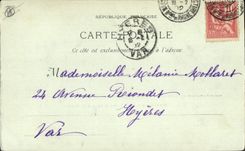 RÉPUBLIQUE FRANÇAISE
CARTE POSTALE
Ce côté est exclusivement réservé à l'adresse
HYÈRES
VAR
Mademoiselle Mélanie Mollaret
24 Avenue Riondet
Hyères
Var